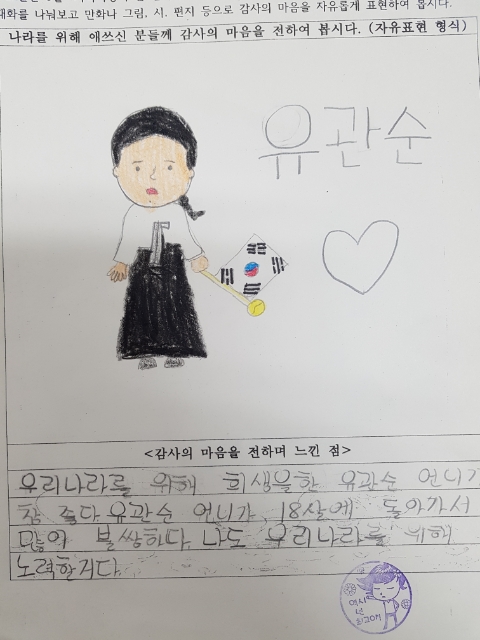 대화를 나눠보고 만화나 그림, 시, 편지 등으로 감사의 마음을 자유롭게 표현하여 봅시다.
나라를 위해 애쓰신 분들께 감사의 마음을 전하여 봅시다. (자유표현 형식)
유관순
<감사의 마음을 전하며 느낀 점>
우리나라를 위해 희생을한 유관순 언니가
참 좋다 유관순 언니가 18살에 돌아가서
많이 불쌍하다. 나도 우리나라를 위해
노력할거다.
역시
넌
최고야